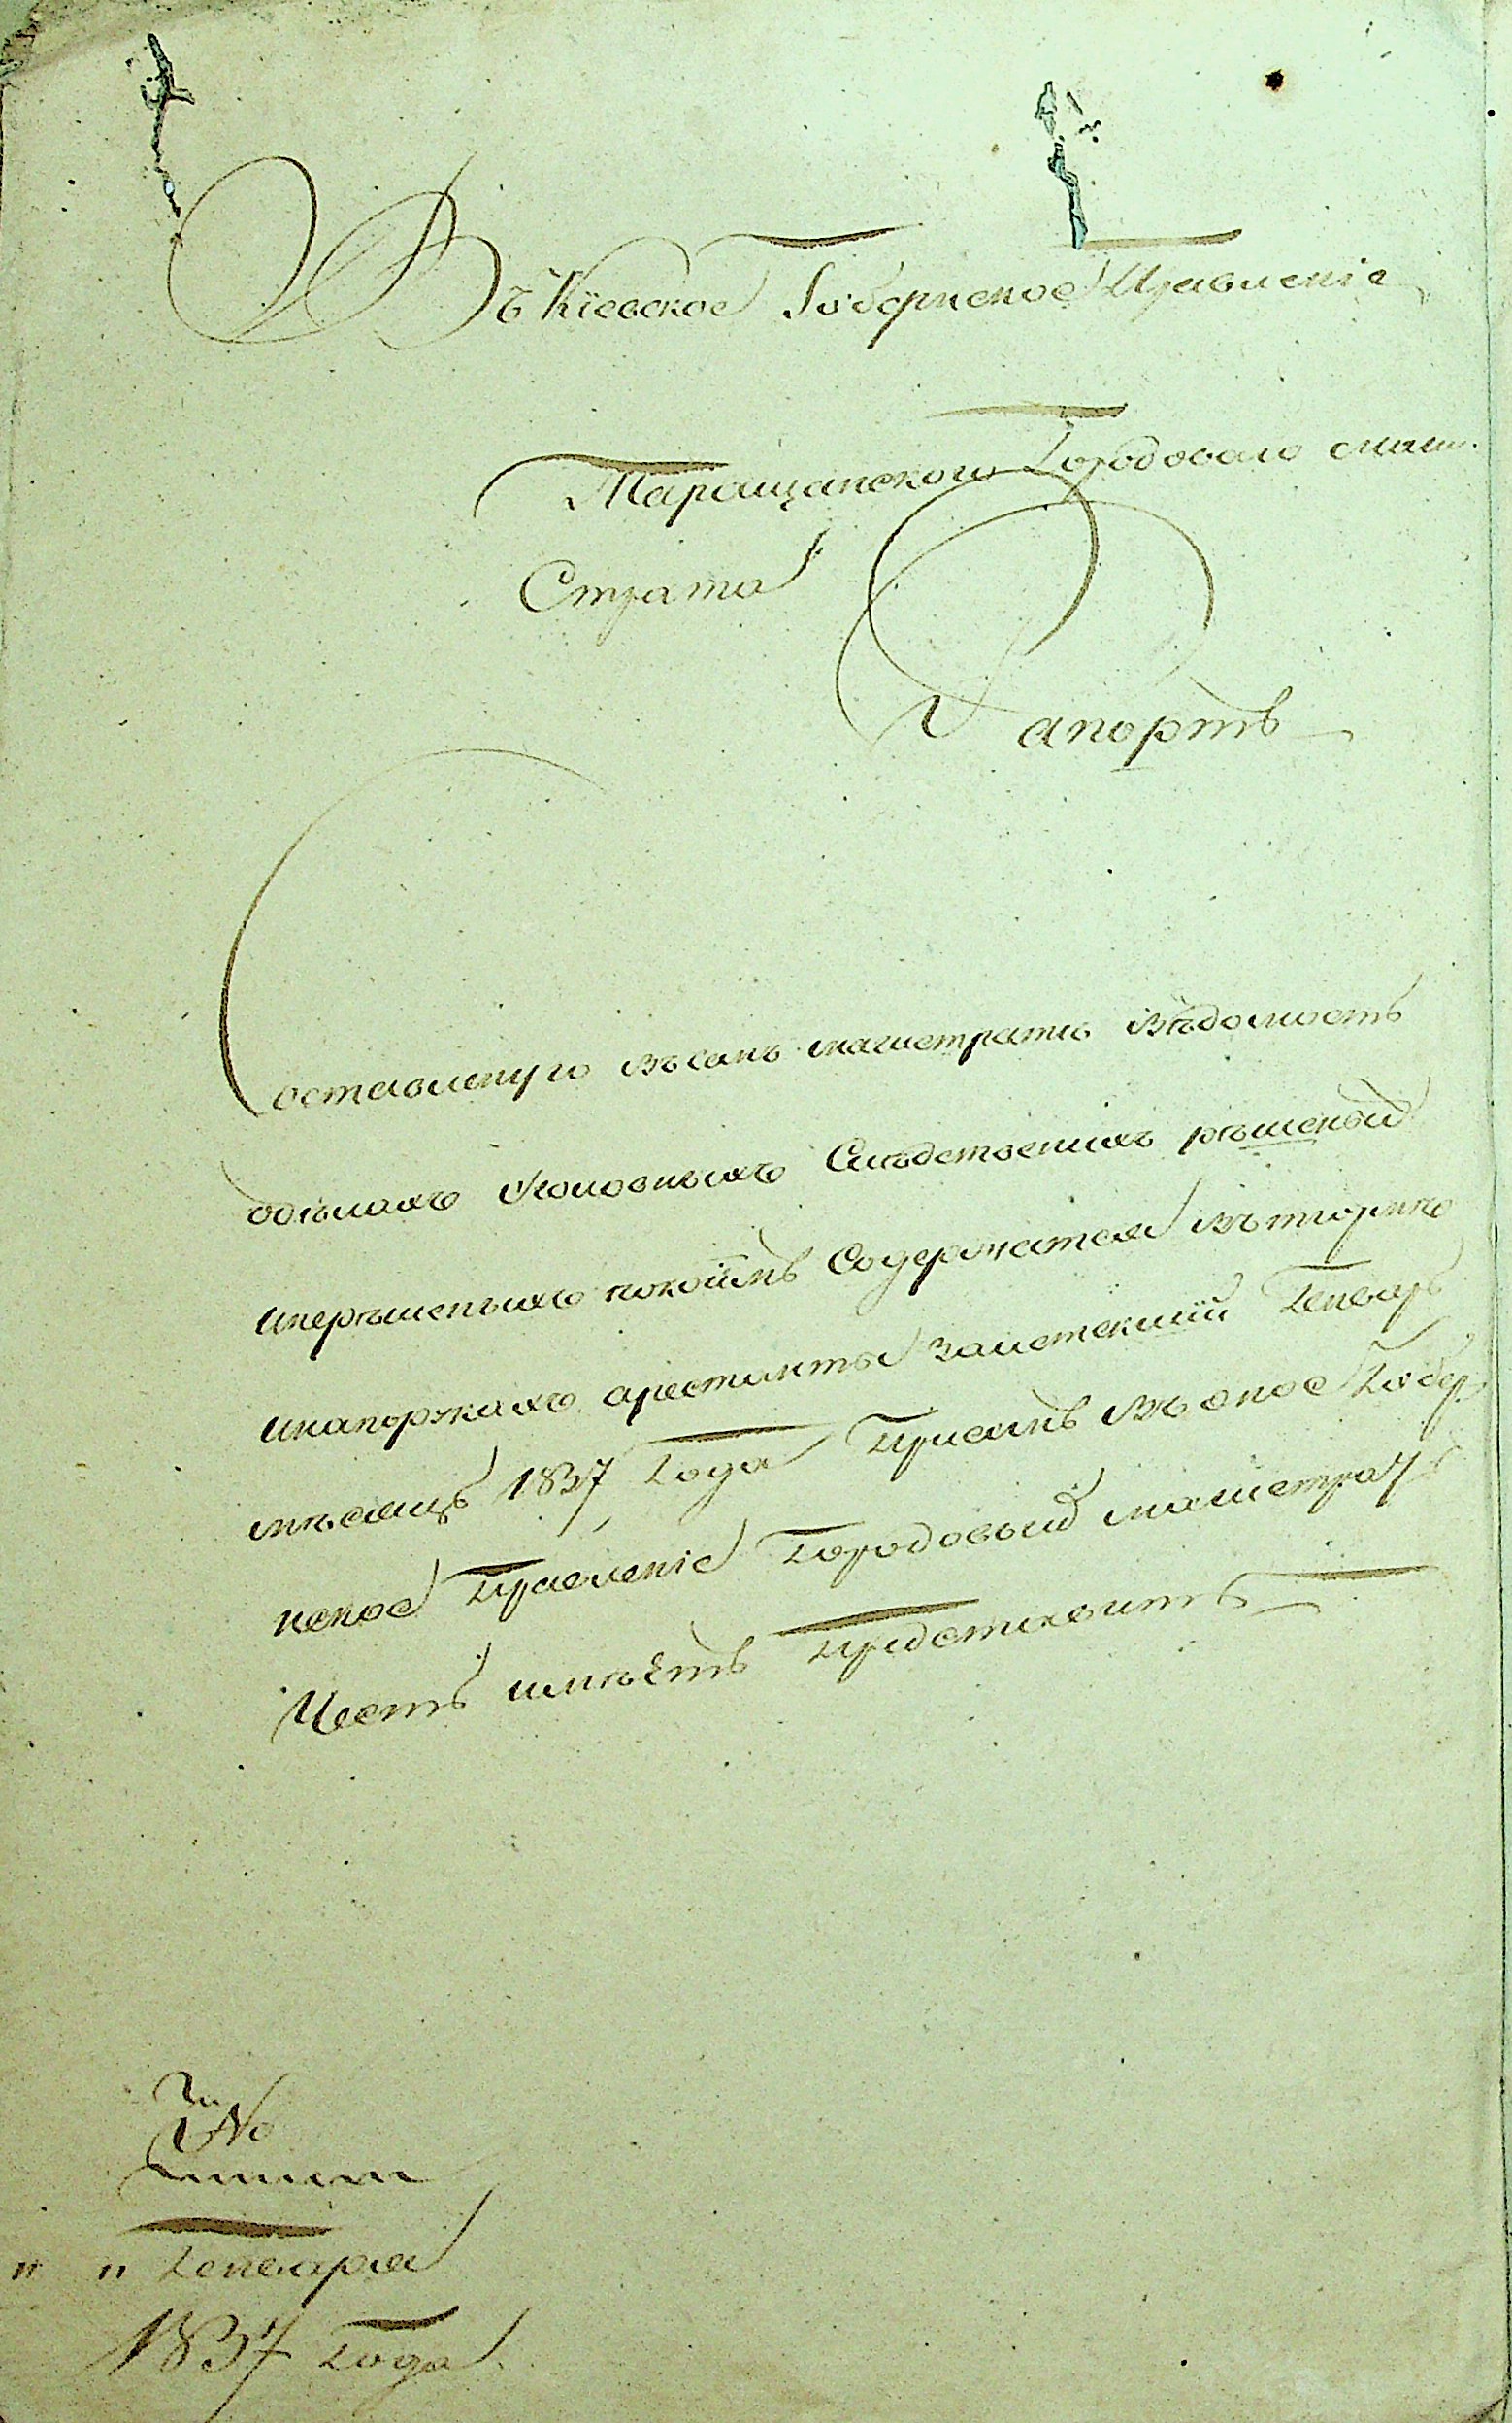 Въ Кіевское Губернское Правленіе
Таращанского Городоваго маги
Страта
Рапортъ
Составленую въ семъ магистратѣ вѣдомость
одѣлахъ уголовныхъ Слѣдственихъ рѣшеный
инерѣшеныхъ покоимъ Содержатся въ тюрмѣ
инапоржкахъ арестанты заистекшій Генварь
мѣсяцъ 1837 Года Присемъ въ оное Губер
нское Правленіе Городовый магистратъ
Честь имѣетъ Придставить
№
" " Генваря
1837 Года